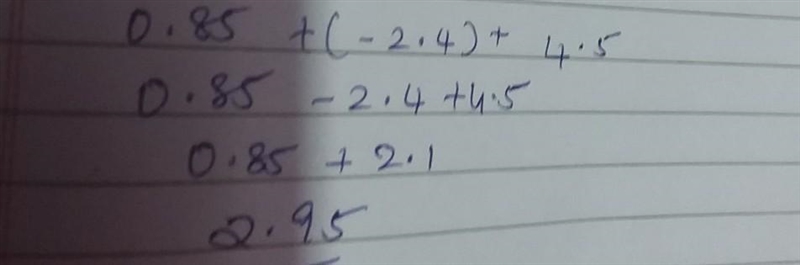 0.85 +(-2.4)+ 4.5
0.85 -2.4+4.5
0.85 + 2.1
2.95